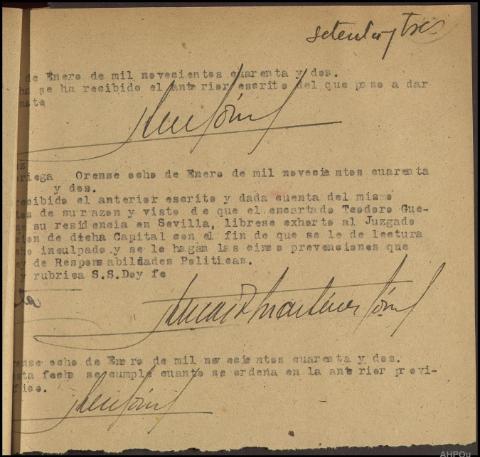 setenta y tres
de Enero de mil novecientos cuarenta y dos.
ha se ha recibido el anterior escrito del que paso a dar
uez
oriega Orense ocho de Enero de mil novecientos cuarenta
y dos.
recibido el anterior escrito y dada cuenta del mismo
tos de su razon y visto de que el encartado Teodoro Gue-
ne su residencia en Sevilla, librese exhorto al Juzgado
cion de dicha Capital con el fin de que se le de lectura
cho inculpado y se le hagan las cinco prevenciones que
y de Responsabilidades Politicas.
y rubrica S.S.Doy fe
ense ocho de Enero de mil novecientos cuarenta y dos.
sta fecha se cumple cuanto se ordena en la anterior provi-
fico.
AHPOu